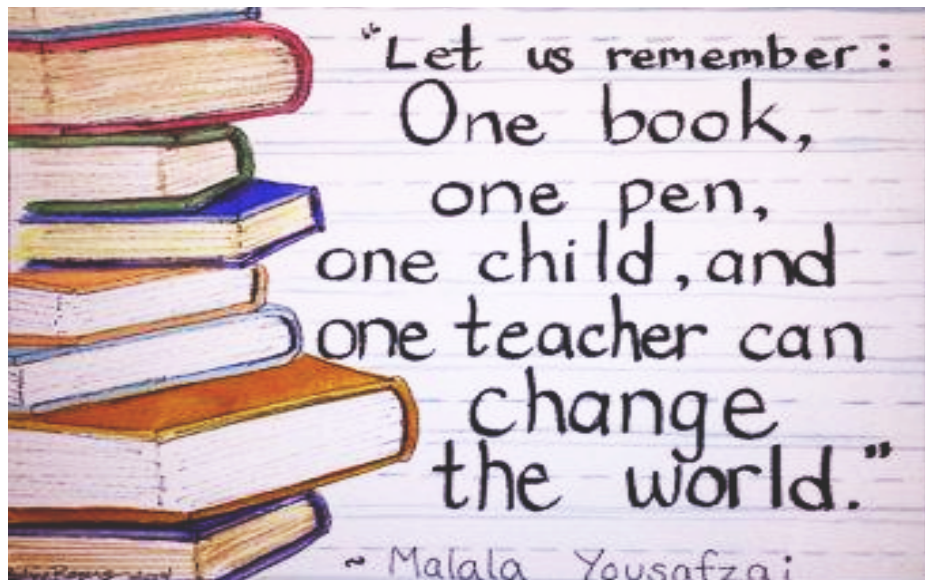 “Let us remember:
One book,
one pen,
one child, and
one teacher can
change
the world.”
~ Malala Yousafzai